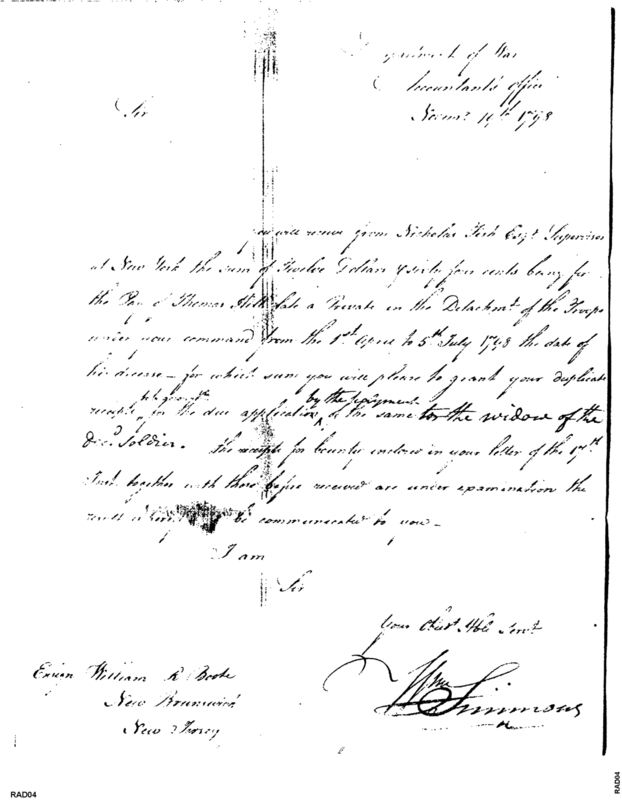 Department of War
Accountants Office
Novemr 19th 1798
Sir
You will receive from Nicholas Fish Esqr Supervisor
at New York the sum of Twelve Dollars & sixty four cents being for
the Pay of Thomas late a Private in the Detachmt of the Troops
under your command from the 1st April to 5th July 1798 the date of
his decease – for which sum you will please to grant your duplicate
receipts for the due application by the payment of the same to the widow of the
Decd Soldier. The receipts for bounty enclosed in your letter of the 17th
Inst together with those before received are under examination the
result be communicated to you –
I am
Sir
Your Obedt Hble Servt
Wm Simmons
Ensign William R Boote
New Brunswick
New Jersey
RAD04
RAD04